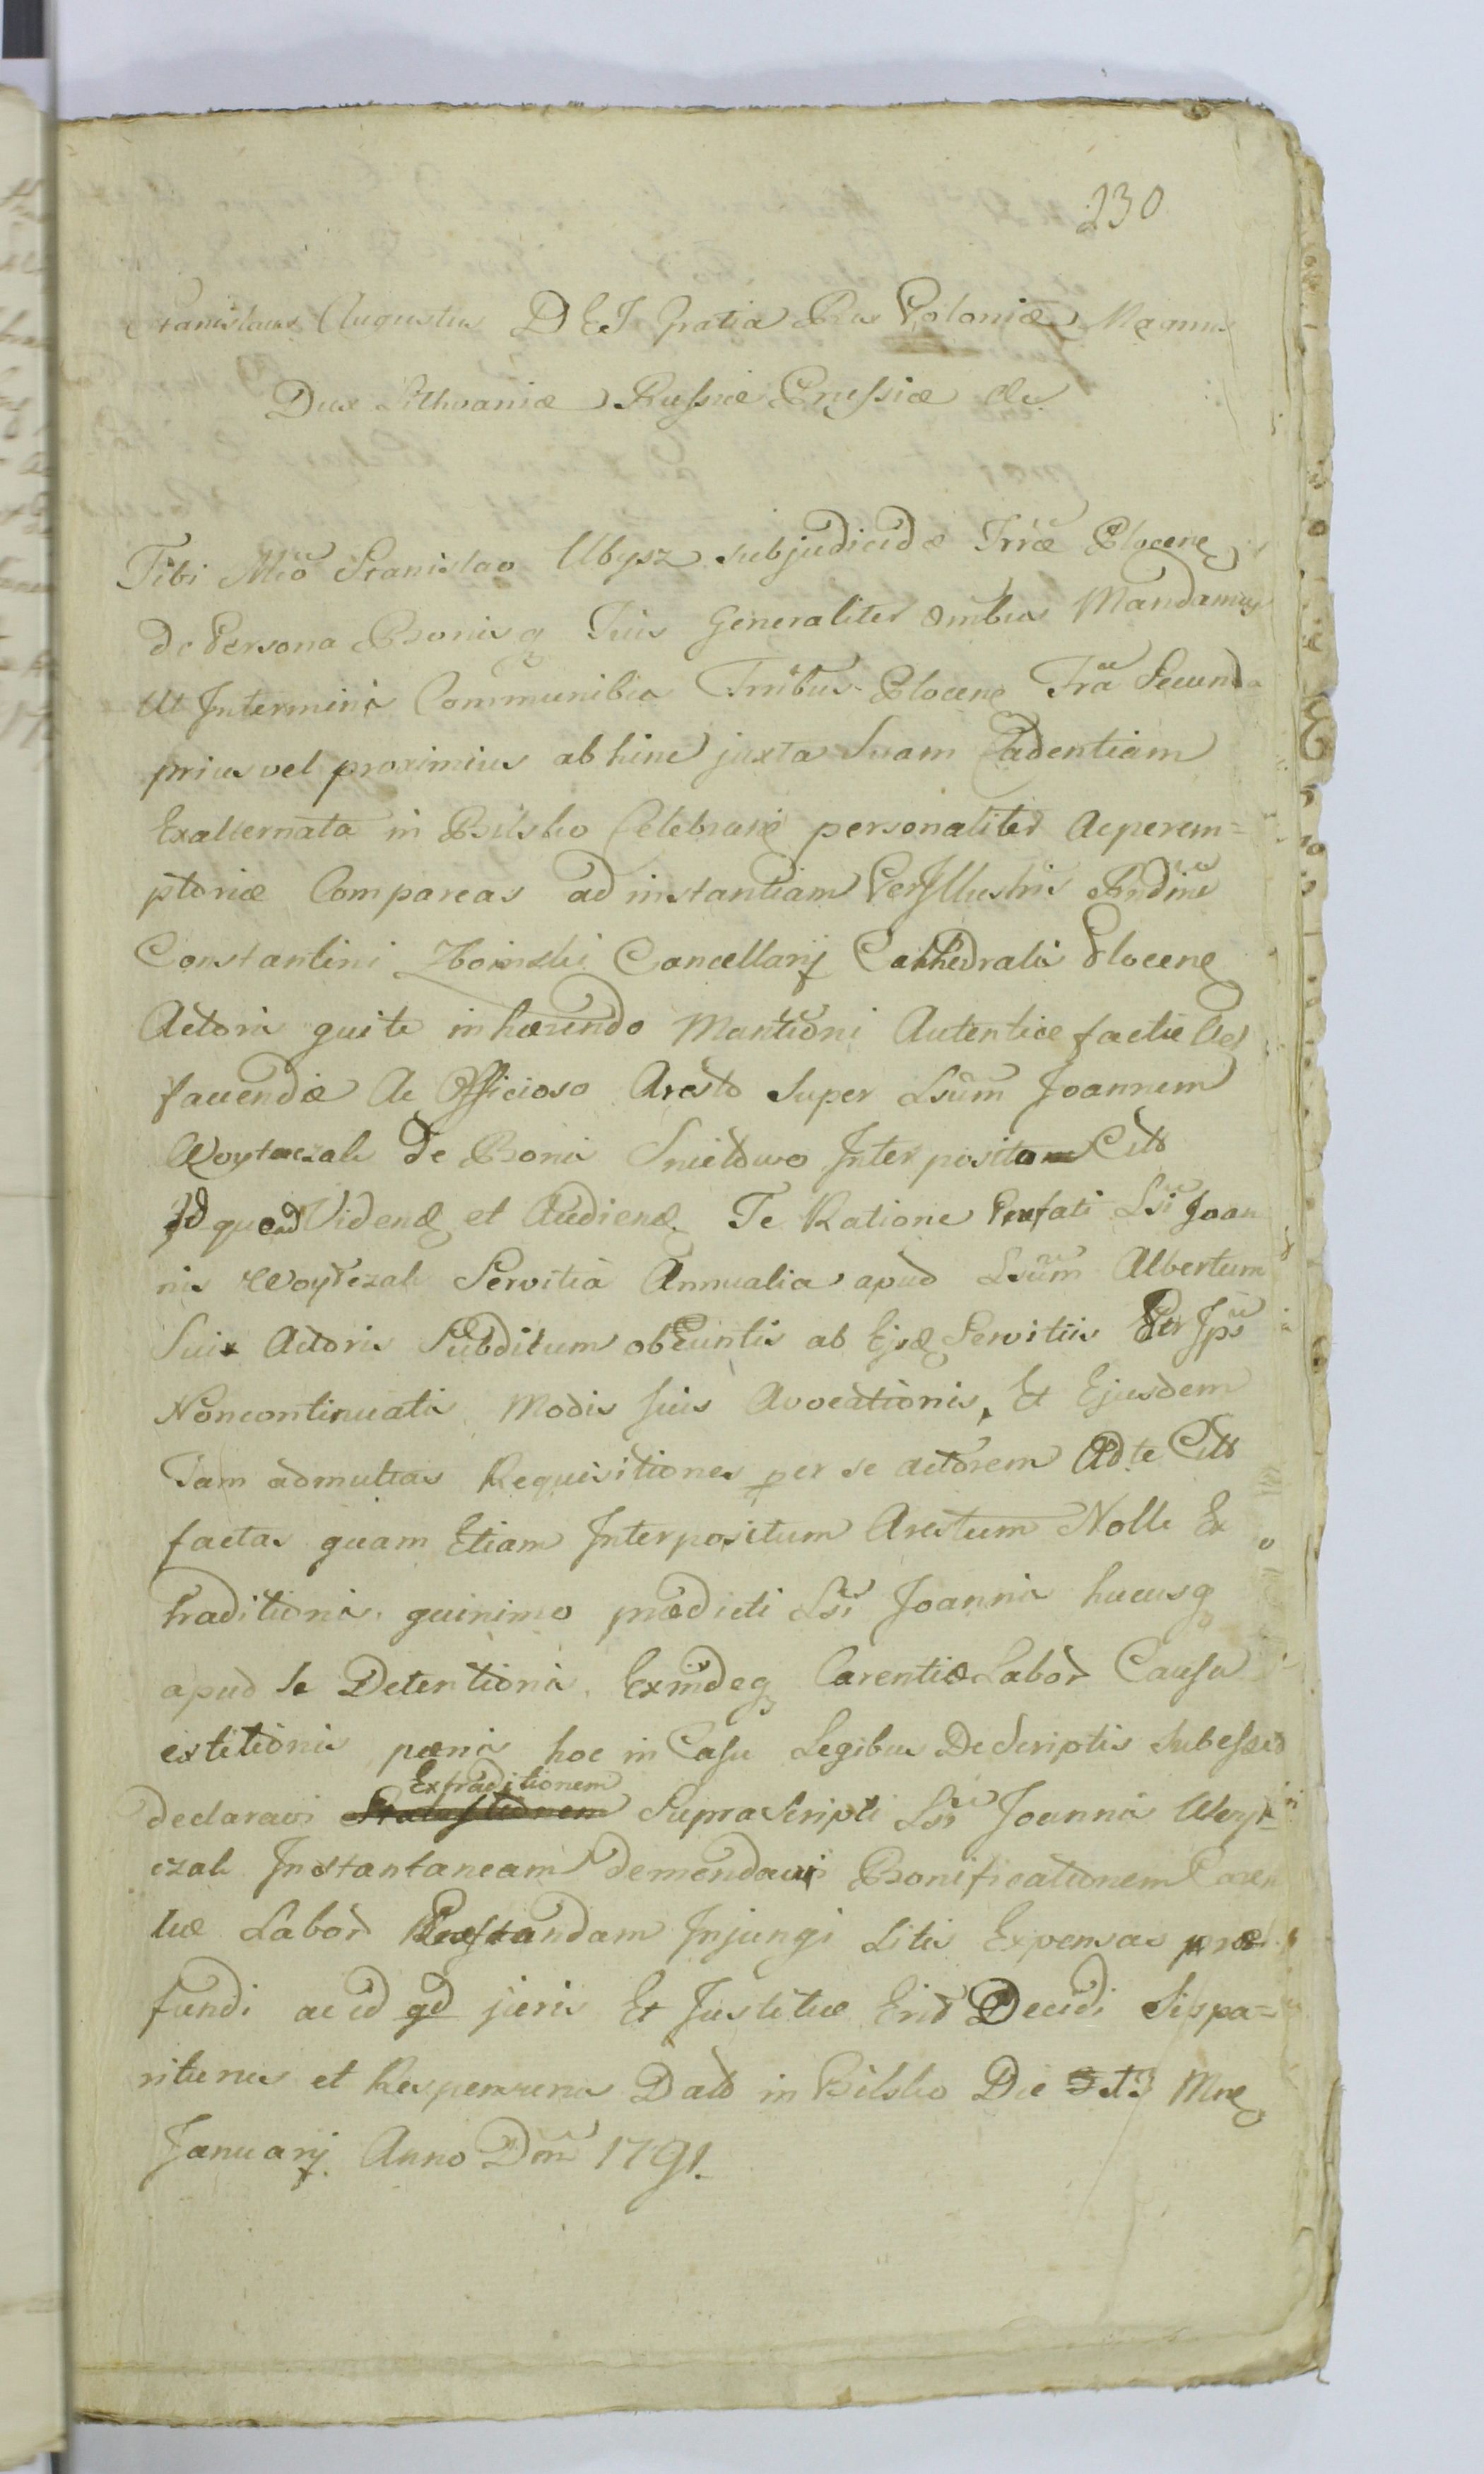 230
Stanislaus Augustus DEI Gratia Rex Poloniæ Magnus
Dux Lithvaniæ Russiæ Prussiæ &c.
Tibi Mco Stanislao Ubysz Subjudicidæ Trræ Plocens
de Persona Bonisq Tuis Generaliter Ombus Mandamus
Ut Interminis Communibus Trribus Plocens Fra Secunda
prius vel proximius abhinc juxta Suam Cadentiam
Exalternata in Bilsko Celebrans personaliter Acperem=
ptoriæ Compareas ad instantiam PerIllustris Rndmi
Constantini Zboinski Cancellarij Cathedralis Plocens
Actoris qui te inhærendo Mantioni Autenticæ factæ Vel
facuendæ Ac Officioso Aresto Super Lsum Joannem
Woytaczak de Bonis Snietowo Interposito Citt
Id quod Vidend et Audiend. Te Ratione Præfati Lsi Joan
nis Woytczak Servitia Annualia apud Lsum Albertum
Sui Actoris Subditum obeuntis ab Ejsd Servitiis Per Ips
Noncontinuatis Modis suis Avocationis, Et Ejusdem
Tam admultas Requisitiones per se actorem Adte Citt
factas quam Etiam Interpositum Arestum Nolle Ex
traditionis, quinimo prædicti Lsi Joannis hucusq
apud se Detentionis, Exindeq Carentiæ Labor Causa
extitionis pænis hoc in Casu Legibus Descriptis Subesse
declarari Extraditionem SupraScripti Lsi Joannis Woyt=
czak Instantaneam demendari Bonificationem Caren
tiæ Labor Præstandam Injungi Litis Expensas præ
fundi ac id qd juris Et Justitiæ Erit Decidi Sis pa=
riturus et Responsurus Datt in Bilsko Die 13 Mns
Januarij Anno Dni 1791.